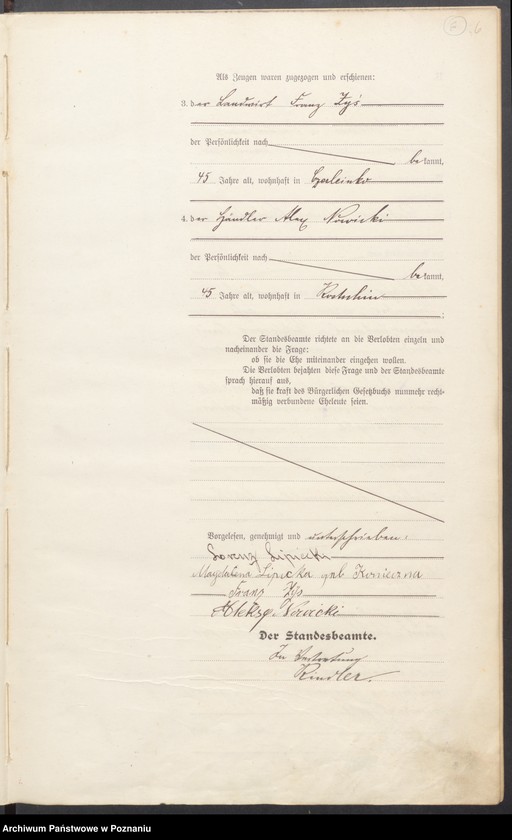 6
Als Zeugen waren zugezogen und erschienen:
3. der Landwirt Franz Zys
der Persönlichkeit nach
bekannt,
45 Jahre alt, wohnhaft in
4. der Händler Alex Nowicki
der Persönlichkeit nach
bekannt,
45 Jahre alt, wohnhaft in Kostschin
;
Der Standesbeamte richtete an die Verlobten einzeln und
nacheinander die Frage:
ob sie die Ehe miteinander eingehen wollen.
Die Verlobten bejahten diese Frage und der Standesbeamte
sprach hierauf aus,
daß sie kraft des Bürgerlichen Gesetzbuchs nunmehr recht-
mäßig verbundene Eheleute seien.
Vorgelesen, genehmigt und unterschrieben:
Lorenz Lipiecki
Magdalena Lipiecka geb Konieczna
Franz Zys
Aleksy Nowicki
Der Standesbeamte.
In Vertretung
Kindler.
Archiwum Państwowe w Poznaniu